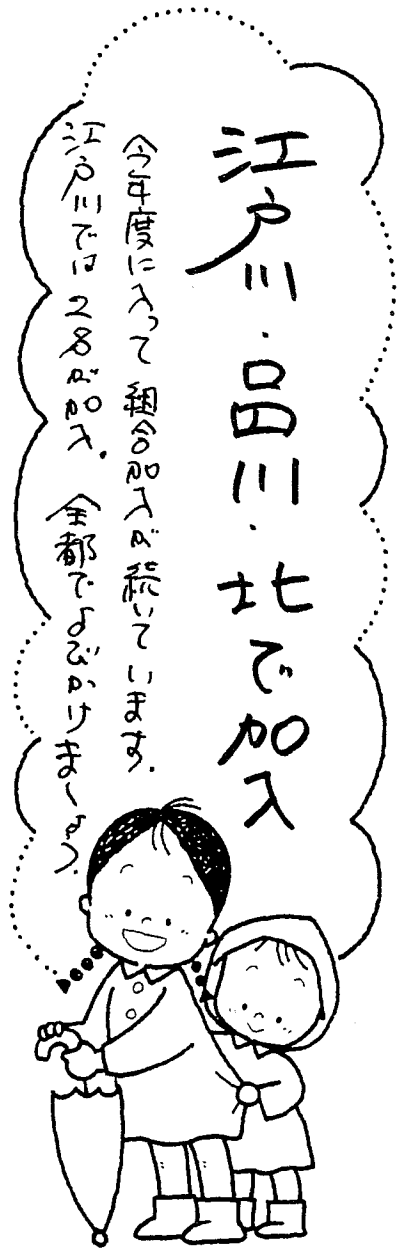 江戸川・品川・北で加入
今年度に入って組合加入が続いています.
江戸川では2名が加入. 全都でよびかけましょう.